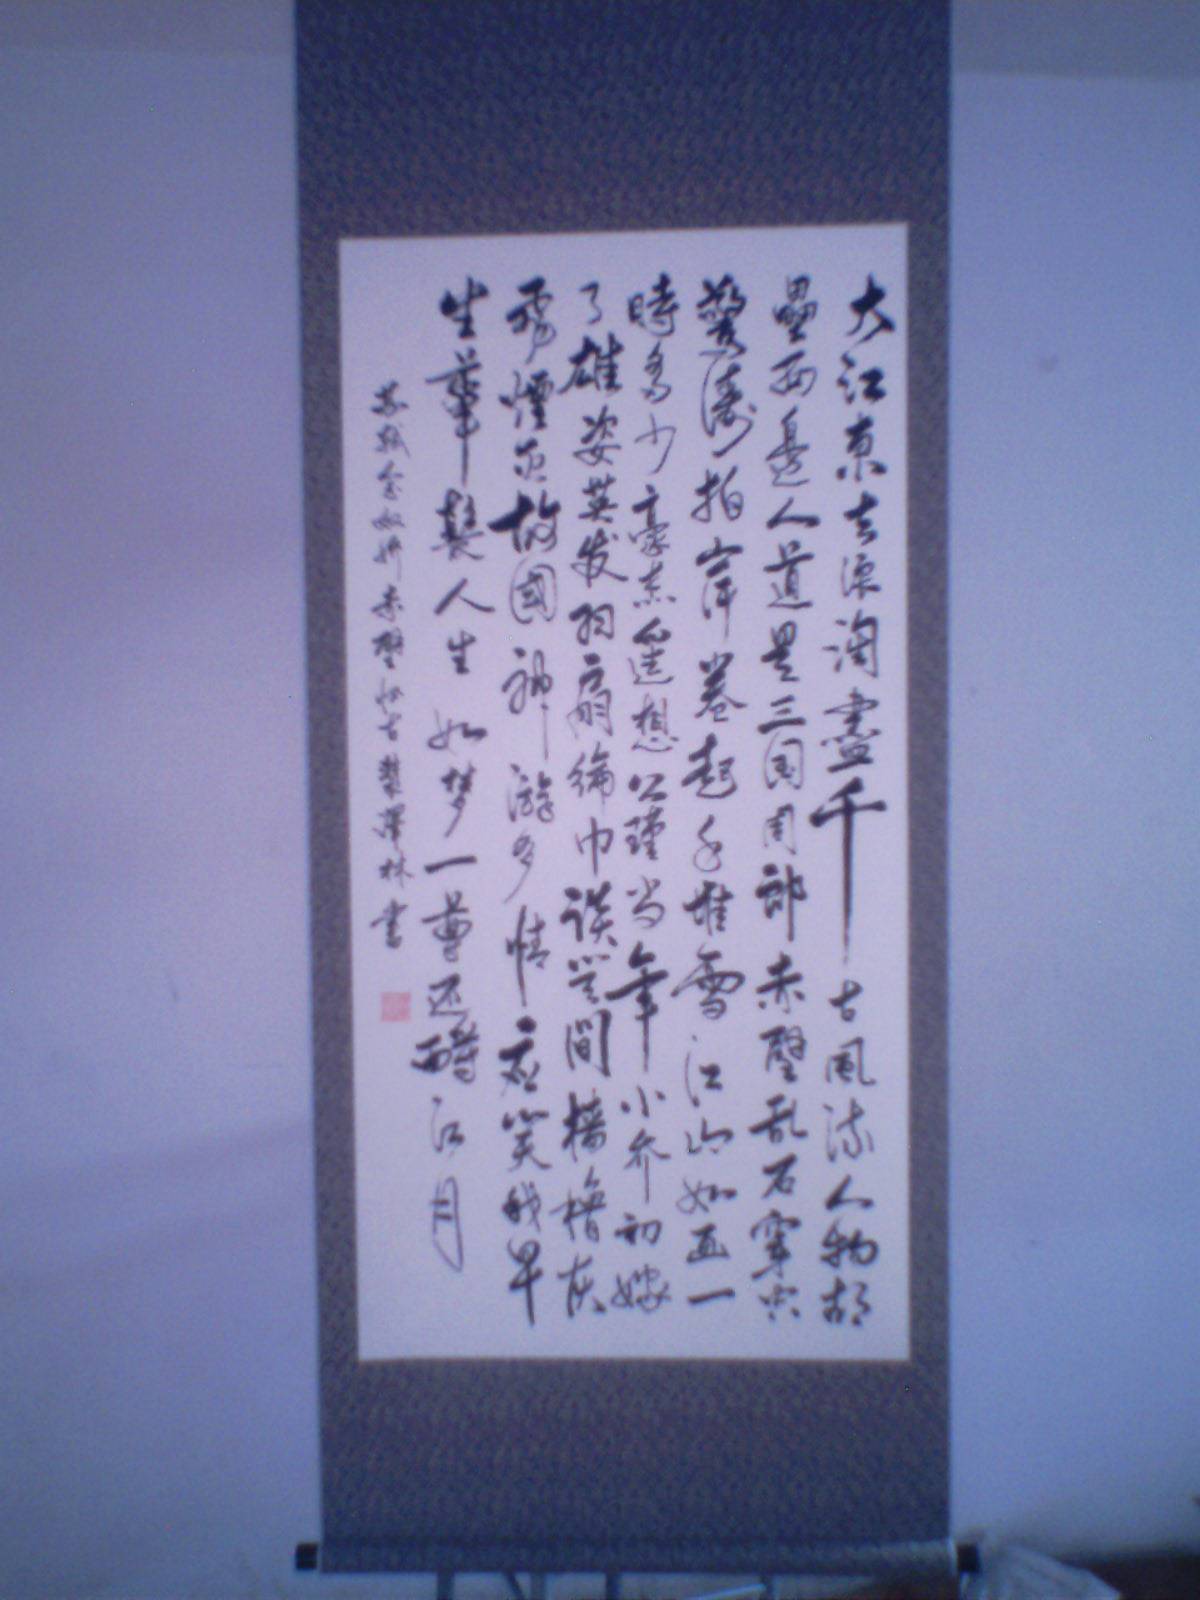 大江東去浪淘盡千古風流人物故
壘西邊人道是三国周郎赤壁乱石穿空
驚濤拍岸卷起千堆雪江山如画一
時多少豪杰遥想公瑾当年小乔初嫁
了雄姿英发羽扇綸巾談笑間檣櫓灰
飛煙灭故國神游多情应笑我早
生華髮人生如梦一尊还酹江月
苏軾念奴娇赤壁怀古 澤林書